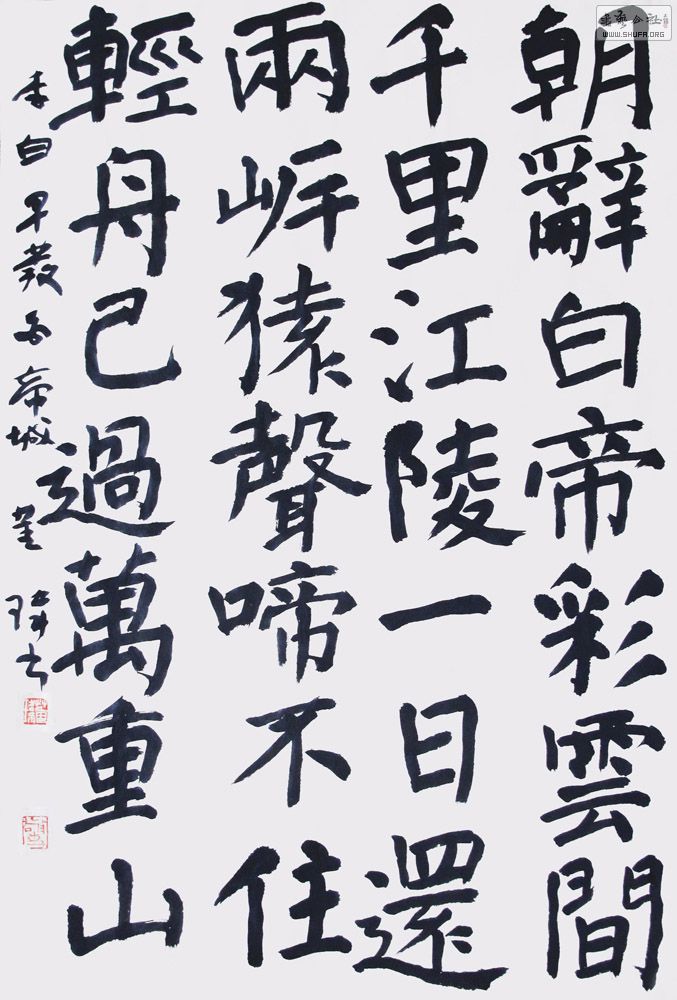 朝辭白帝彩雲間
千里江陵一日還
兩岸猿聲啼不住
輕舟已過萬重山
李白早發白帝城
WWW.SHUFA.ORG